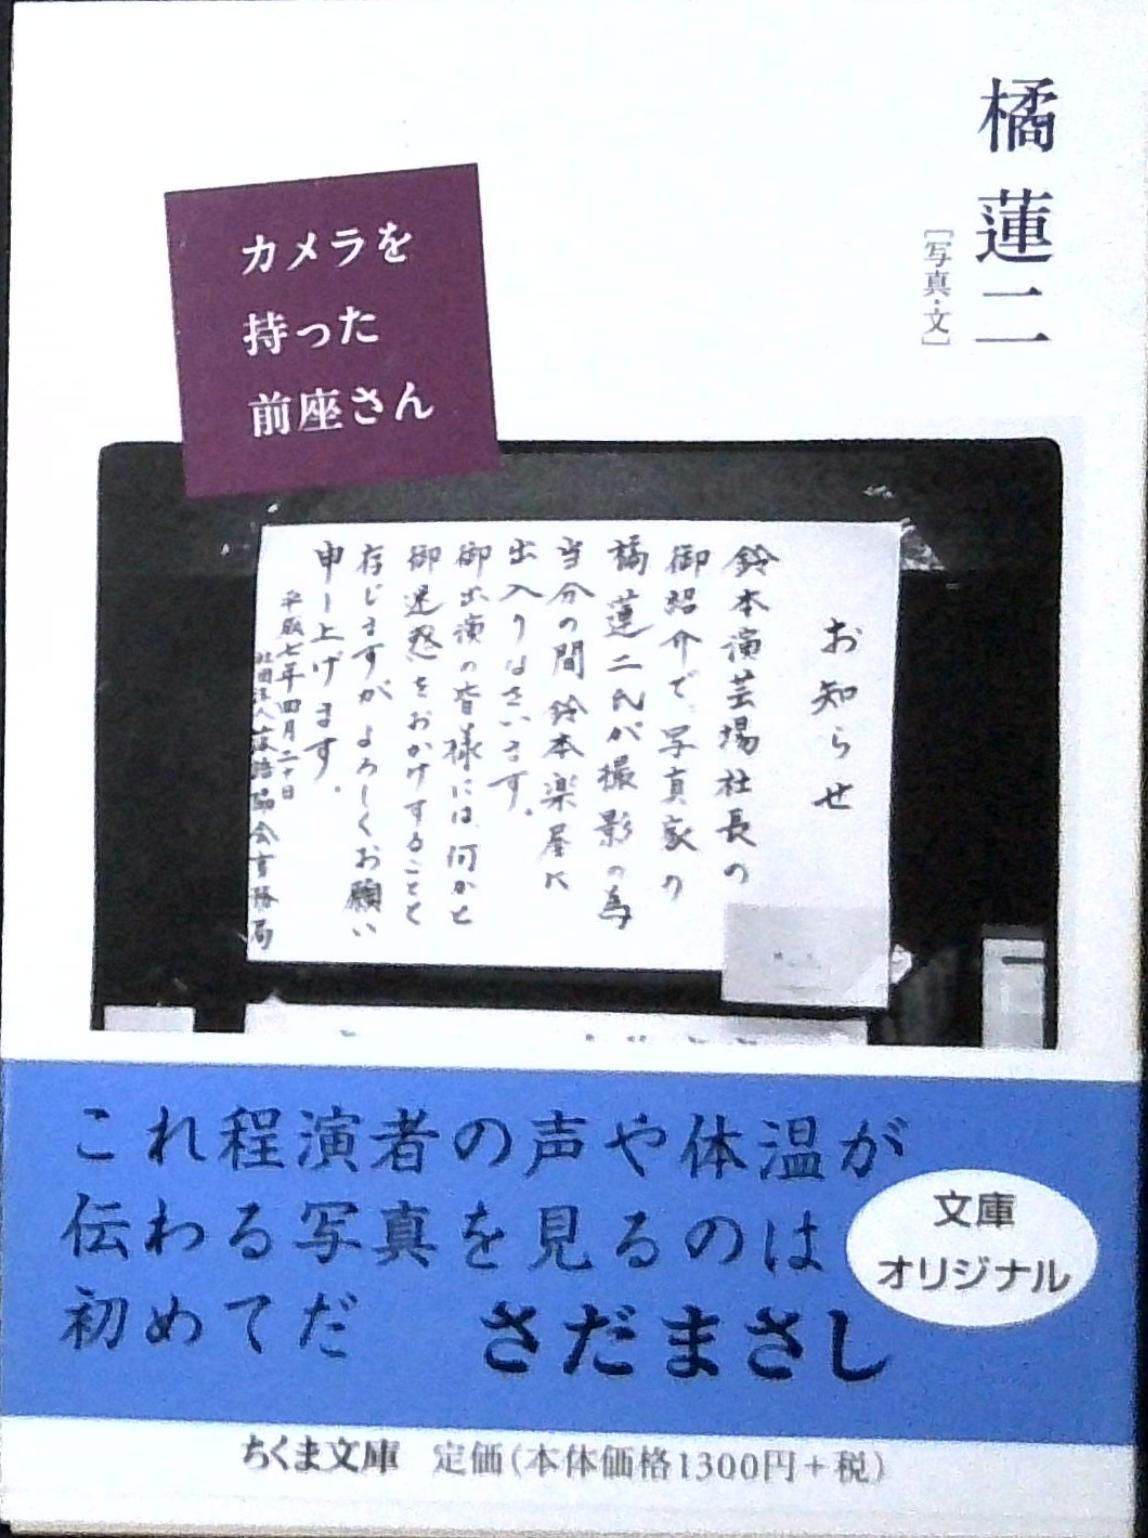 橘 蓮二
[写真・文]
カメラを
持った
前座さん
お知らせ
鈴本演芸場社長の
御紹介で、写真家の
橘蓮二氏が撮影の為
当分の間鈴本楽屋に
出入りなさいます。
御出演の皆様には、何かと
御迷惑をおかけすることと
存じますがよろしくお願い
申し上げます。
平成七年四月二十日
社団法人落語協会事務局
これ程演者の声や体温が
伝わる写真を見るのは
初めてだ さだまさし
文庫
オリジナル
ちくま文庫 定価(本体価格1300円+税)